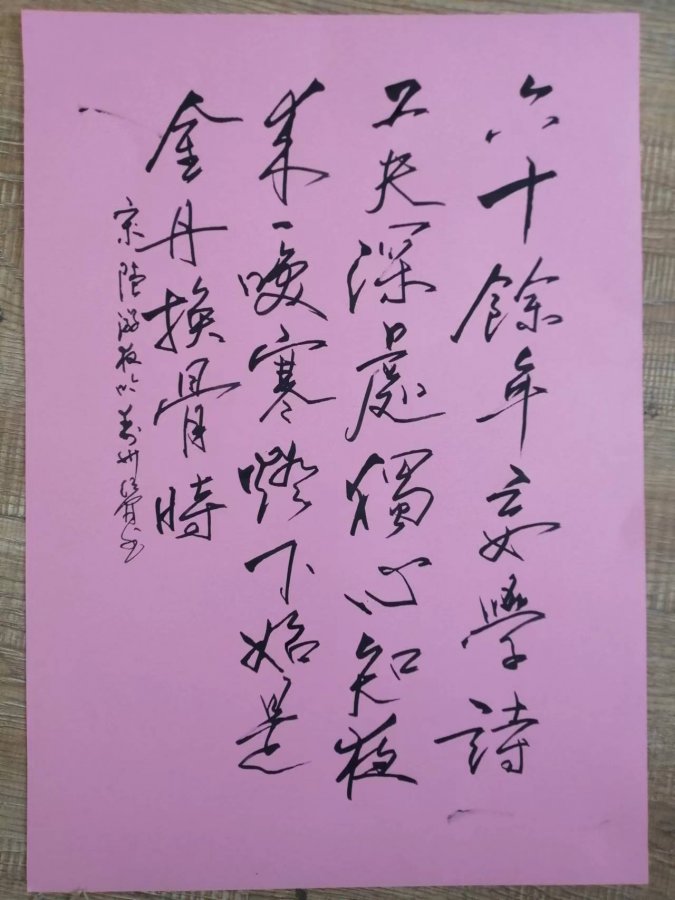 六十餘年妄學詩
工夫深處獨心知夜
来一咲寒燈下始是
金丹換骨時
宋陸游夜吟